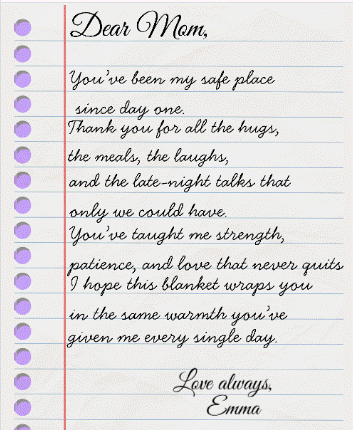 Dear Mom,
You've been my safe place
since day one.
Thank you for all the hugs,
the meals, the laughs,
and the late-night talks that
only we could have.
You've taught me strength,
patience, and love that never quits
I hope this blanket wraps you
in the same warmth you've
given me every single day.
Love always,
Emma